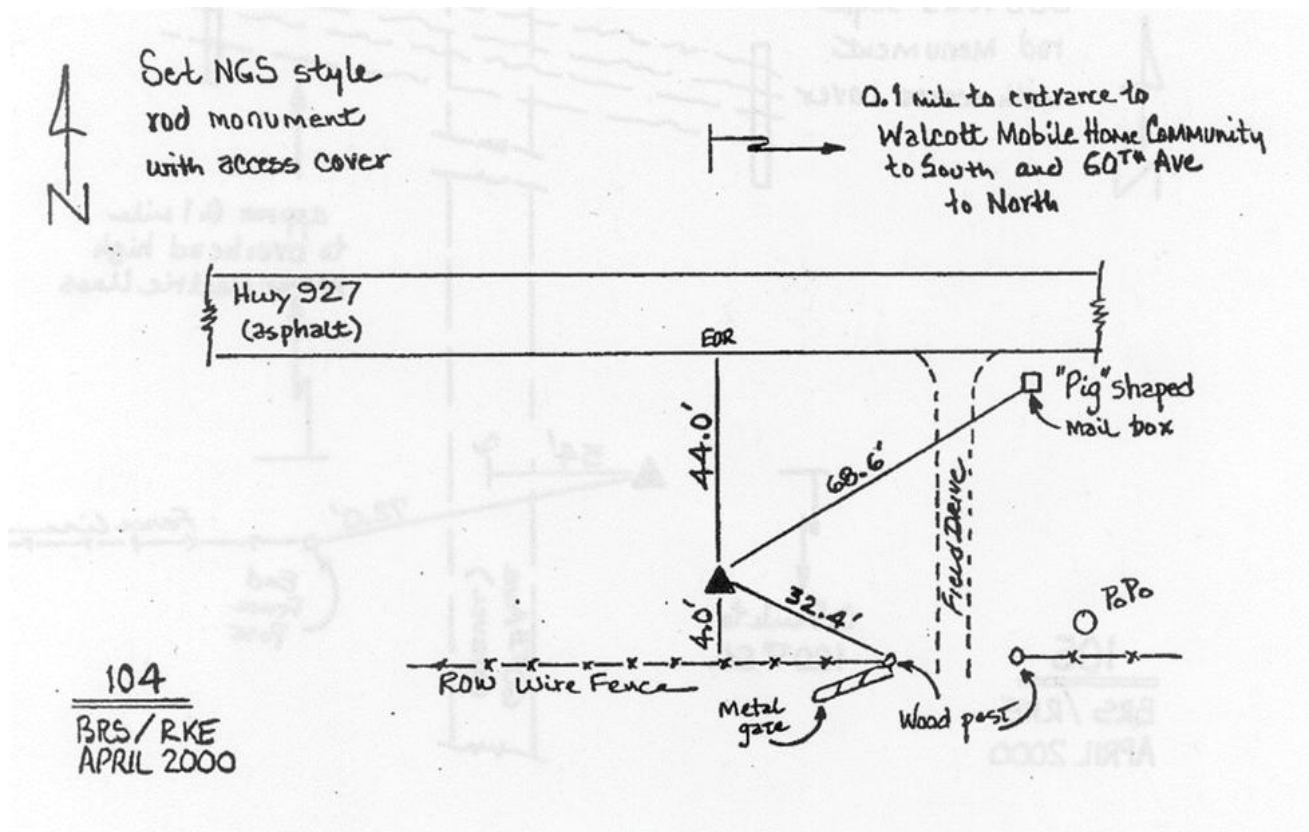 Set NGS style
rod monument
with access cover
N
0.1 mile to entrance to
Walcott Mobile Home Community
to South and 60TH Ave
to North
Hwy 927
(asphalt)
EOR
"Pig" shaped
mail box
44.0'
68.6'
Field Drive
32.4'
4.0'
PoPo
ROW Wire Fence
Metal
gate
Wood post
104
BRS/RKE
APRIL 2000